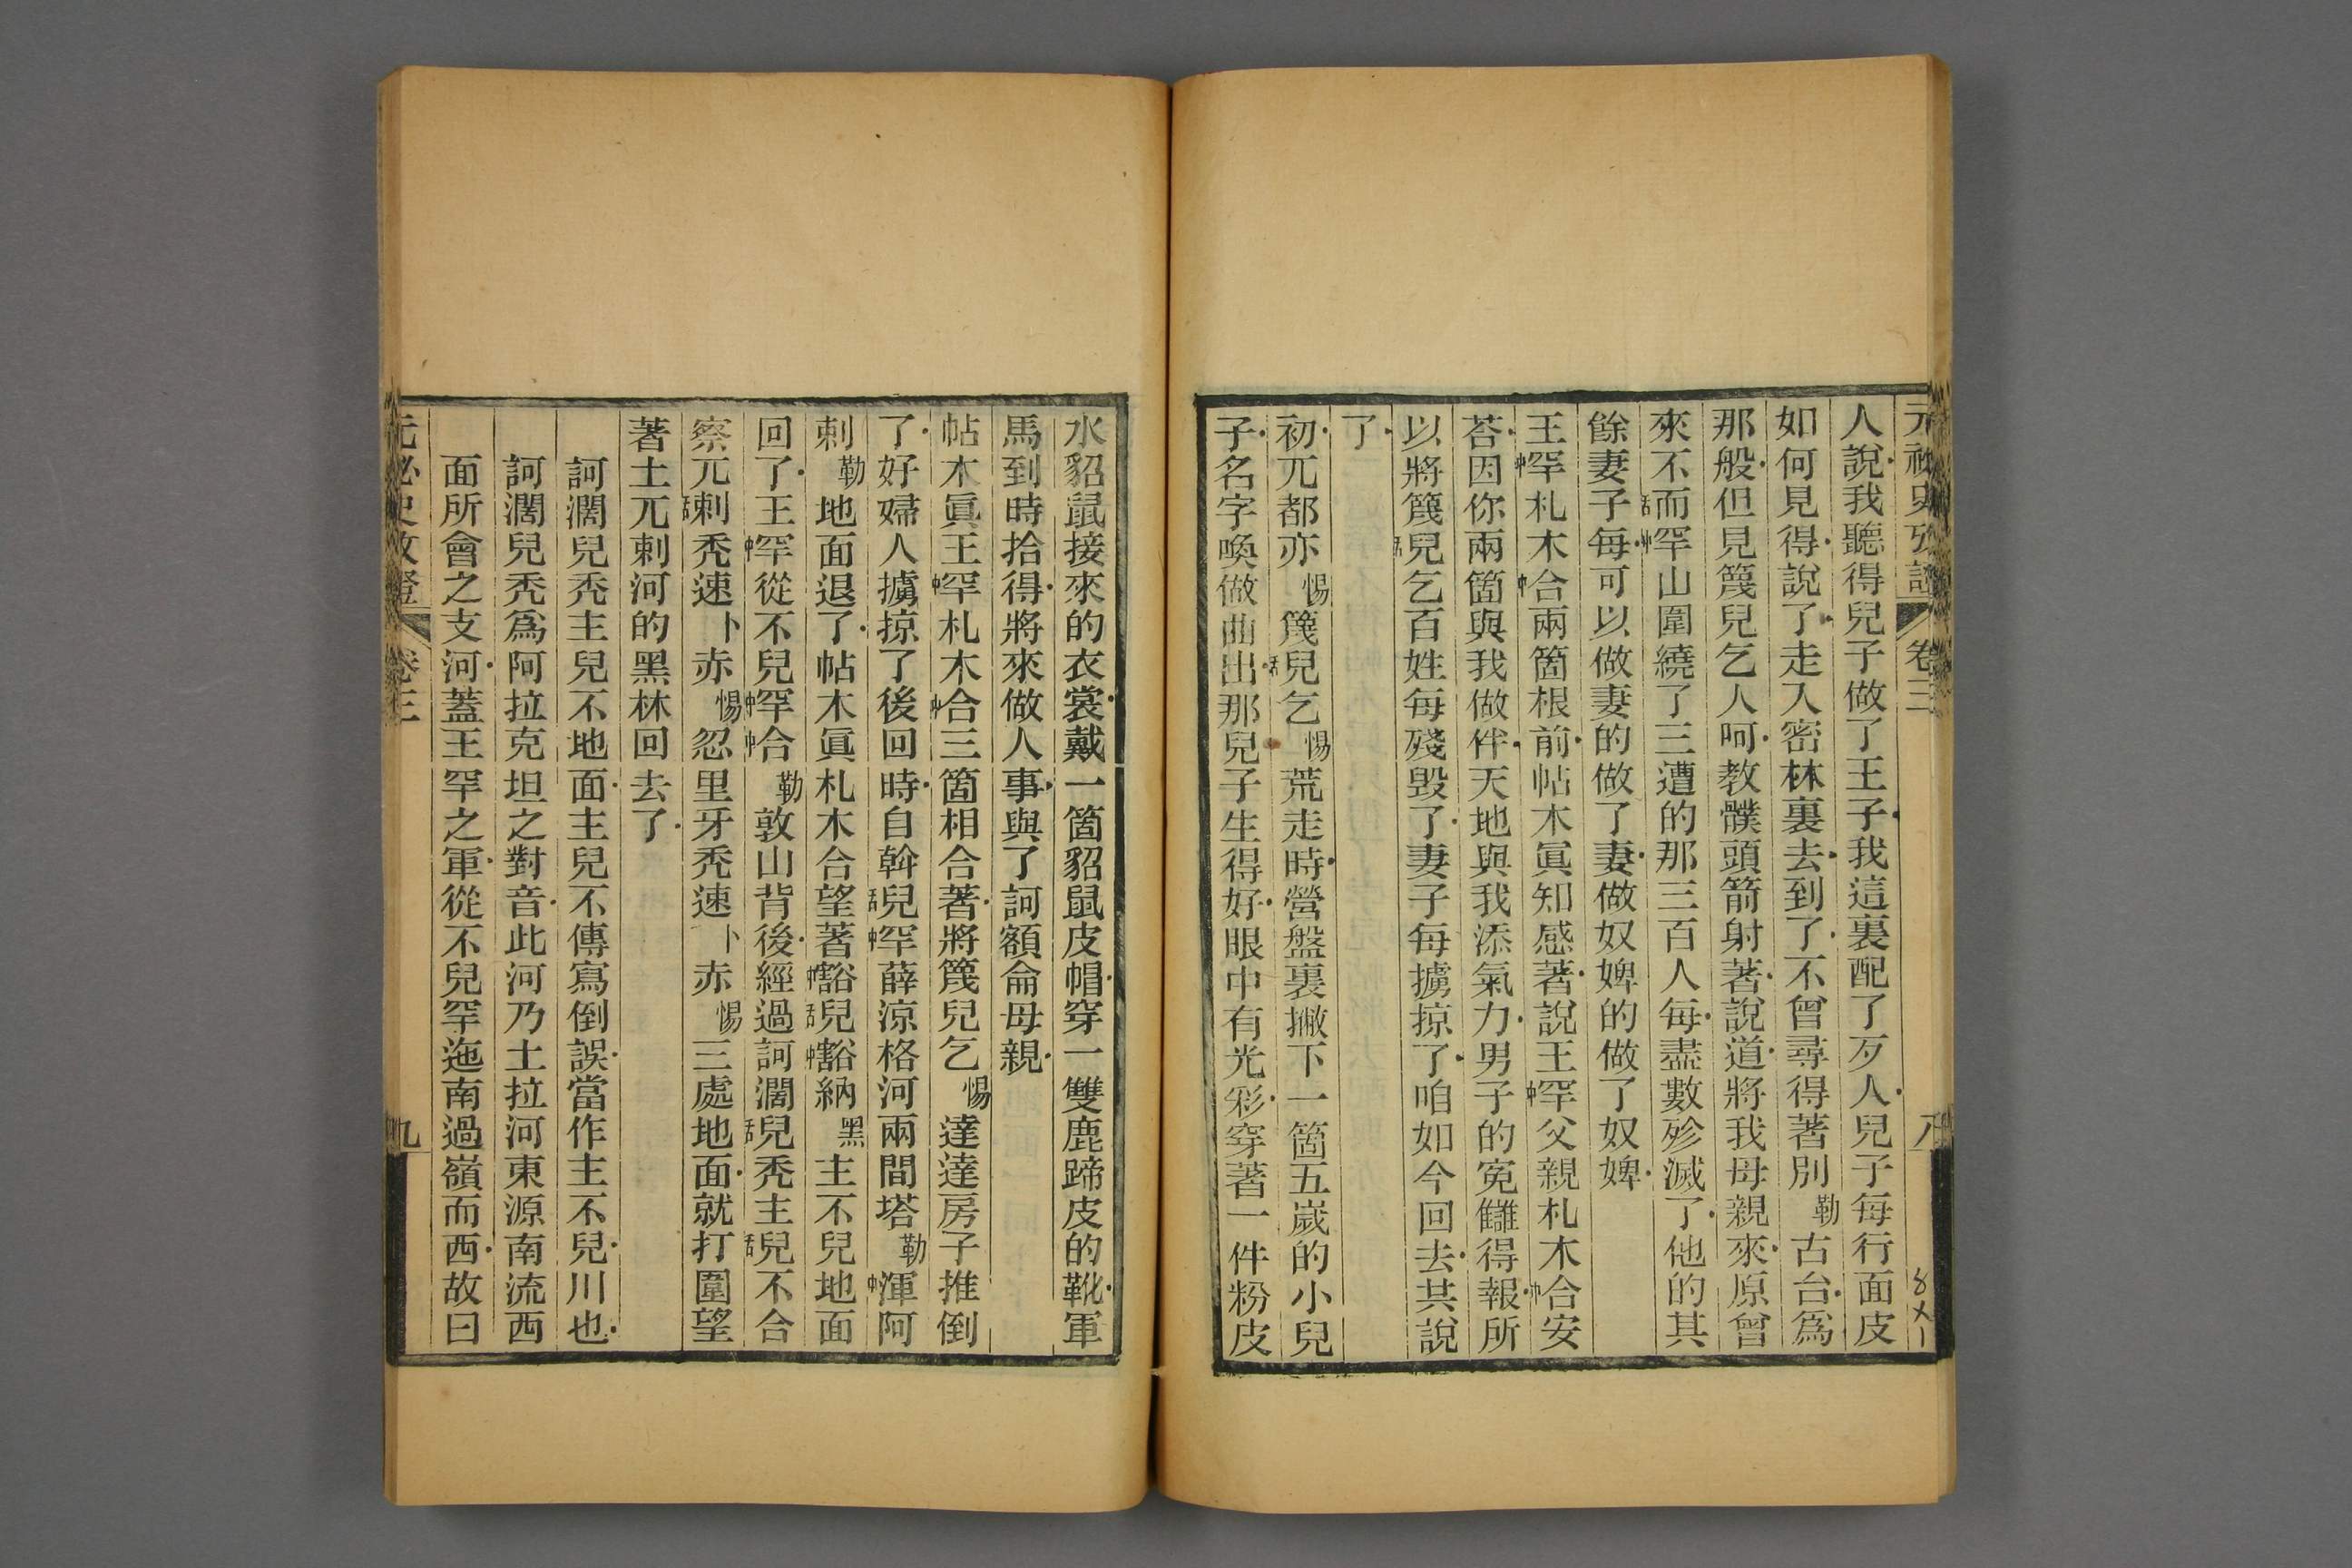 元祕史攷證 卷三 八
人說我聽得兒子做了王子我這裏配了歹人兒子每行面皮
如何見得說了走入密林裏去到了不曾尋得著別勒古台爲
那般但見篾兒乞人呵教髏頭箭射著說道將我母親來原曾
來不而罕山圍繞了三遭的那三百人每盡數殄滅了他的其
餘妻子每可以做妻的做了妻做奴婢的做了奴婢
王罕札木合兩箇根前帖木眞知感著說王罕父親札木合安
荅因你兩箇與我做伴天地與我添氣力男子的寃讎得報所
以將篾兒乞百姓每殘毀了妻子每擄掠了咱如今回去共說
了
初兀都亦惕篾兒乞惕荒走時營盤裏撇下一箇五歲的小兒
子名字喚做曲出那兒子生得好眼中有光彩穿著一件粉皮
水貂鼠接來的衣裳戴一箇貂鼠皮帽穿一雙鹿蹄皮的靴軍
馬到時拾得將來做人事與了訶額侖母親
帖木眞王罕札木合三箇相合著將篾兒乞惕達達房子推倒
了好婦人擄掠了後回時自斡兒罕薛涼格河兩間塔勒渾阿
剌勒地面退了帖木眞札木合望著豁兒豁納黑主不兒地面
回了王罕從不兒罕合勒敦山背後經過訶濶兒禿主兒不合
察兀剌禿速卜赤惕忽里牙禿速卜赤惕三處地面就打圍望
著土兀剌河的黑林回去了
訶濶兒禿主兒不地面主兒不傳寫倒誤當作主不兒川也
訶濶兒禿爲阿拉克坦之對音此河乃土拉河東源南流西
面所會之支河蓋王罕之軍從不兒罕迤南過嶺而西故曰
元祕史攷證 卷三 九